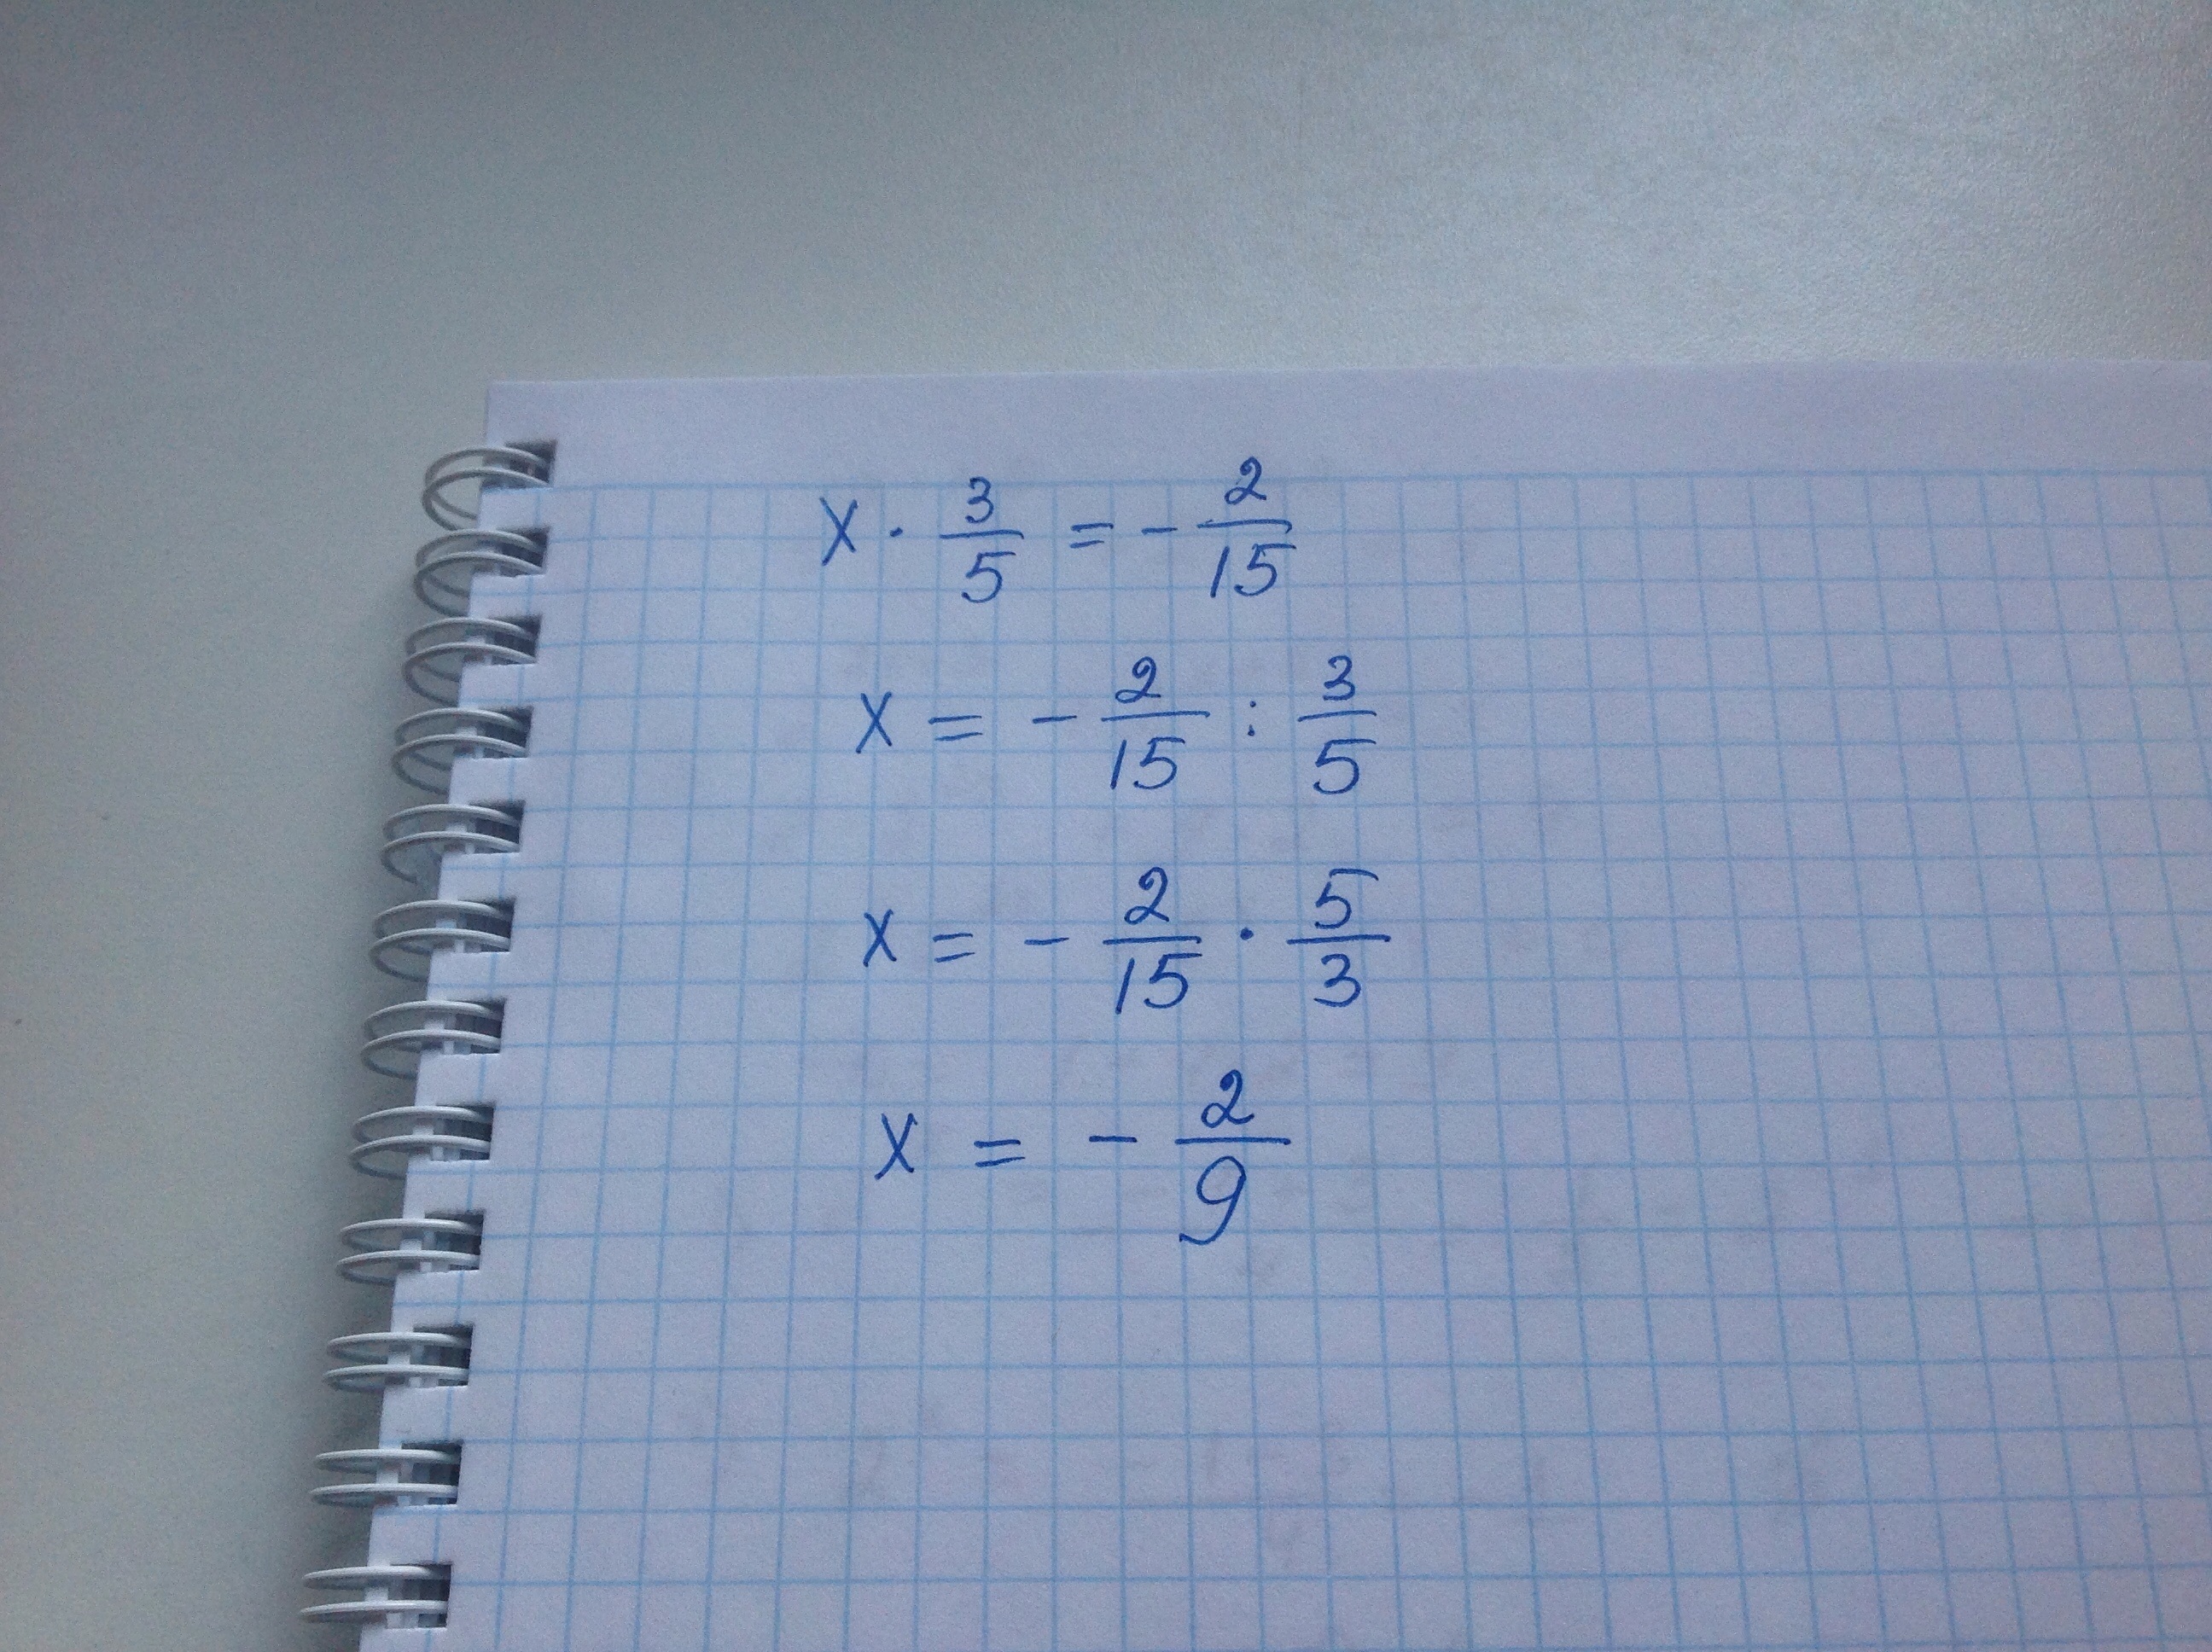 x · 3/5 = - 2/15
x = - 2/15 : 3/5
x = - 2/15 · 5/3
x = - 2/9